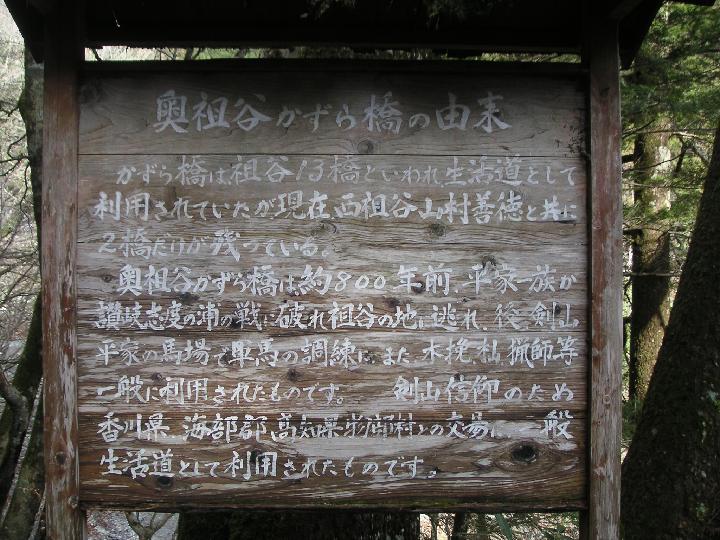 奥祖谷かずら橋の由来
かずら橋は祖谷13橋といわれ、生活道として
利用されていたが現在西祖谷山村善徳と共に
2橋だけが残っている。
奥祖谷かずら橋は約800年前、平家一族が
讃岐志度の浦の戦に破れ祖谷の地に逃れ、後、剣山
平家の馬場で軍馬の調練に、また、木挽、杣、猟師等
一般に利用されたものです。 剣山信仰のため
香川県、海部郡、高知県 村との交易に、一般
生活道として利用されたものです。